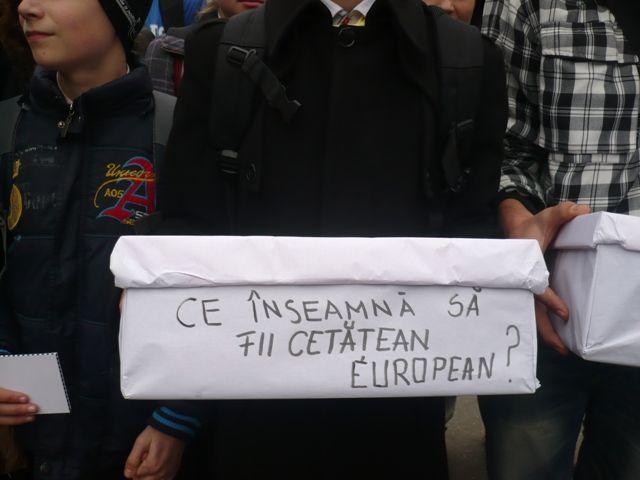 CE ÎNSEAMNĂ SĂ
FII CETĂȚEAN
EUROPEAN?
A05